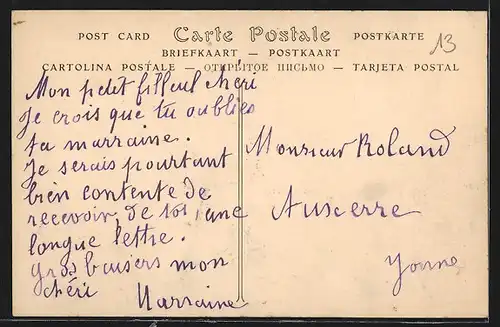 POST CARD Carte Postale POSTKARTE
BRIEFKAART — POSTKAART
CARTOLINA POSTALE — ОТКРЫТОЕ ПИСЬМО — TARJETA POSTAL
13
Mon petit filleul chéri
Je crois que tu oublies
ta marraine.
Je serais pourtant
bien contente de
recevoir, de toi, une
longue lettre.
Gros baisers mon
chéri
Marraine
Monsieur Roland
Auxerre
Yonne